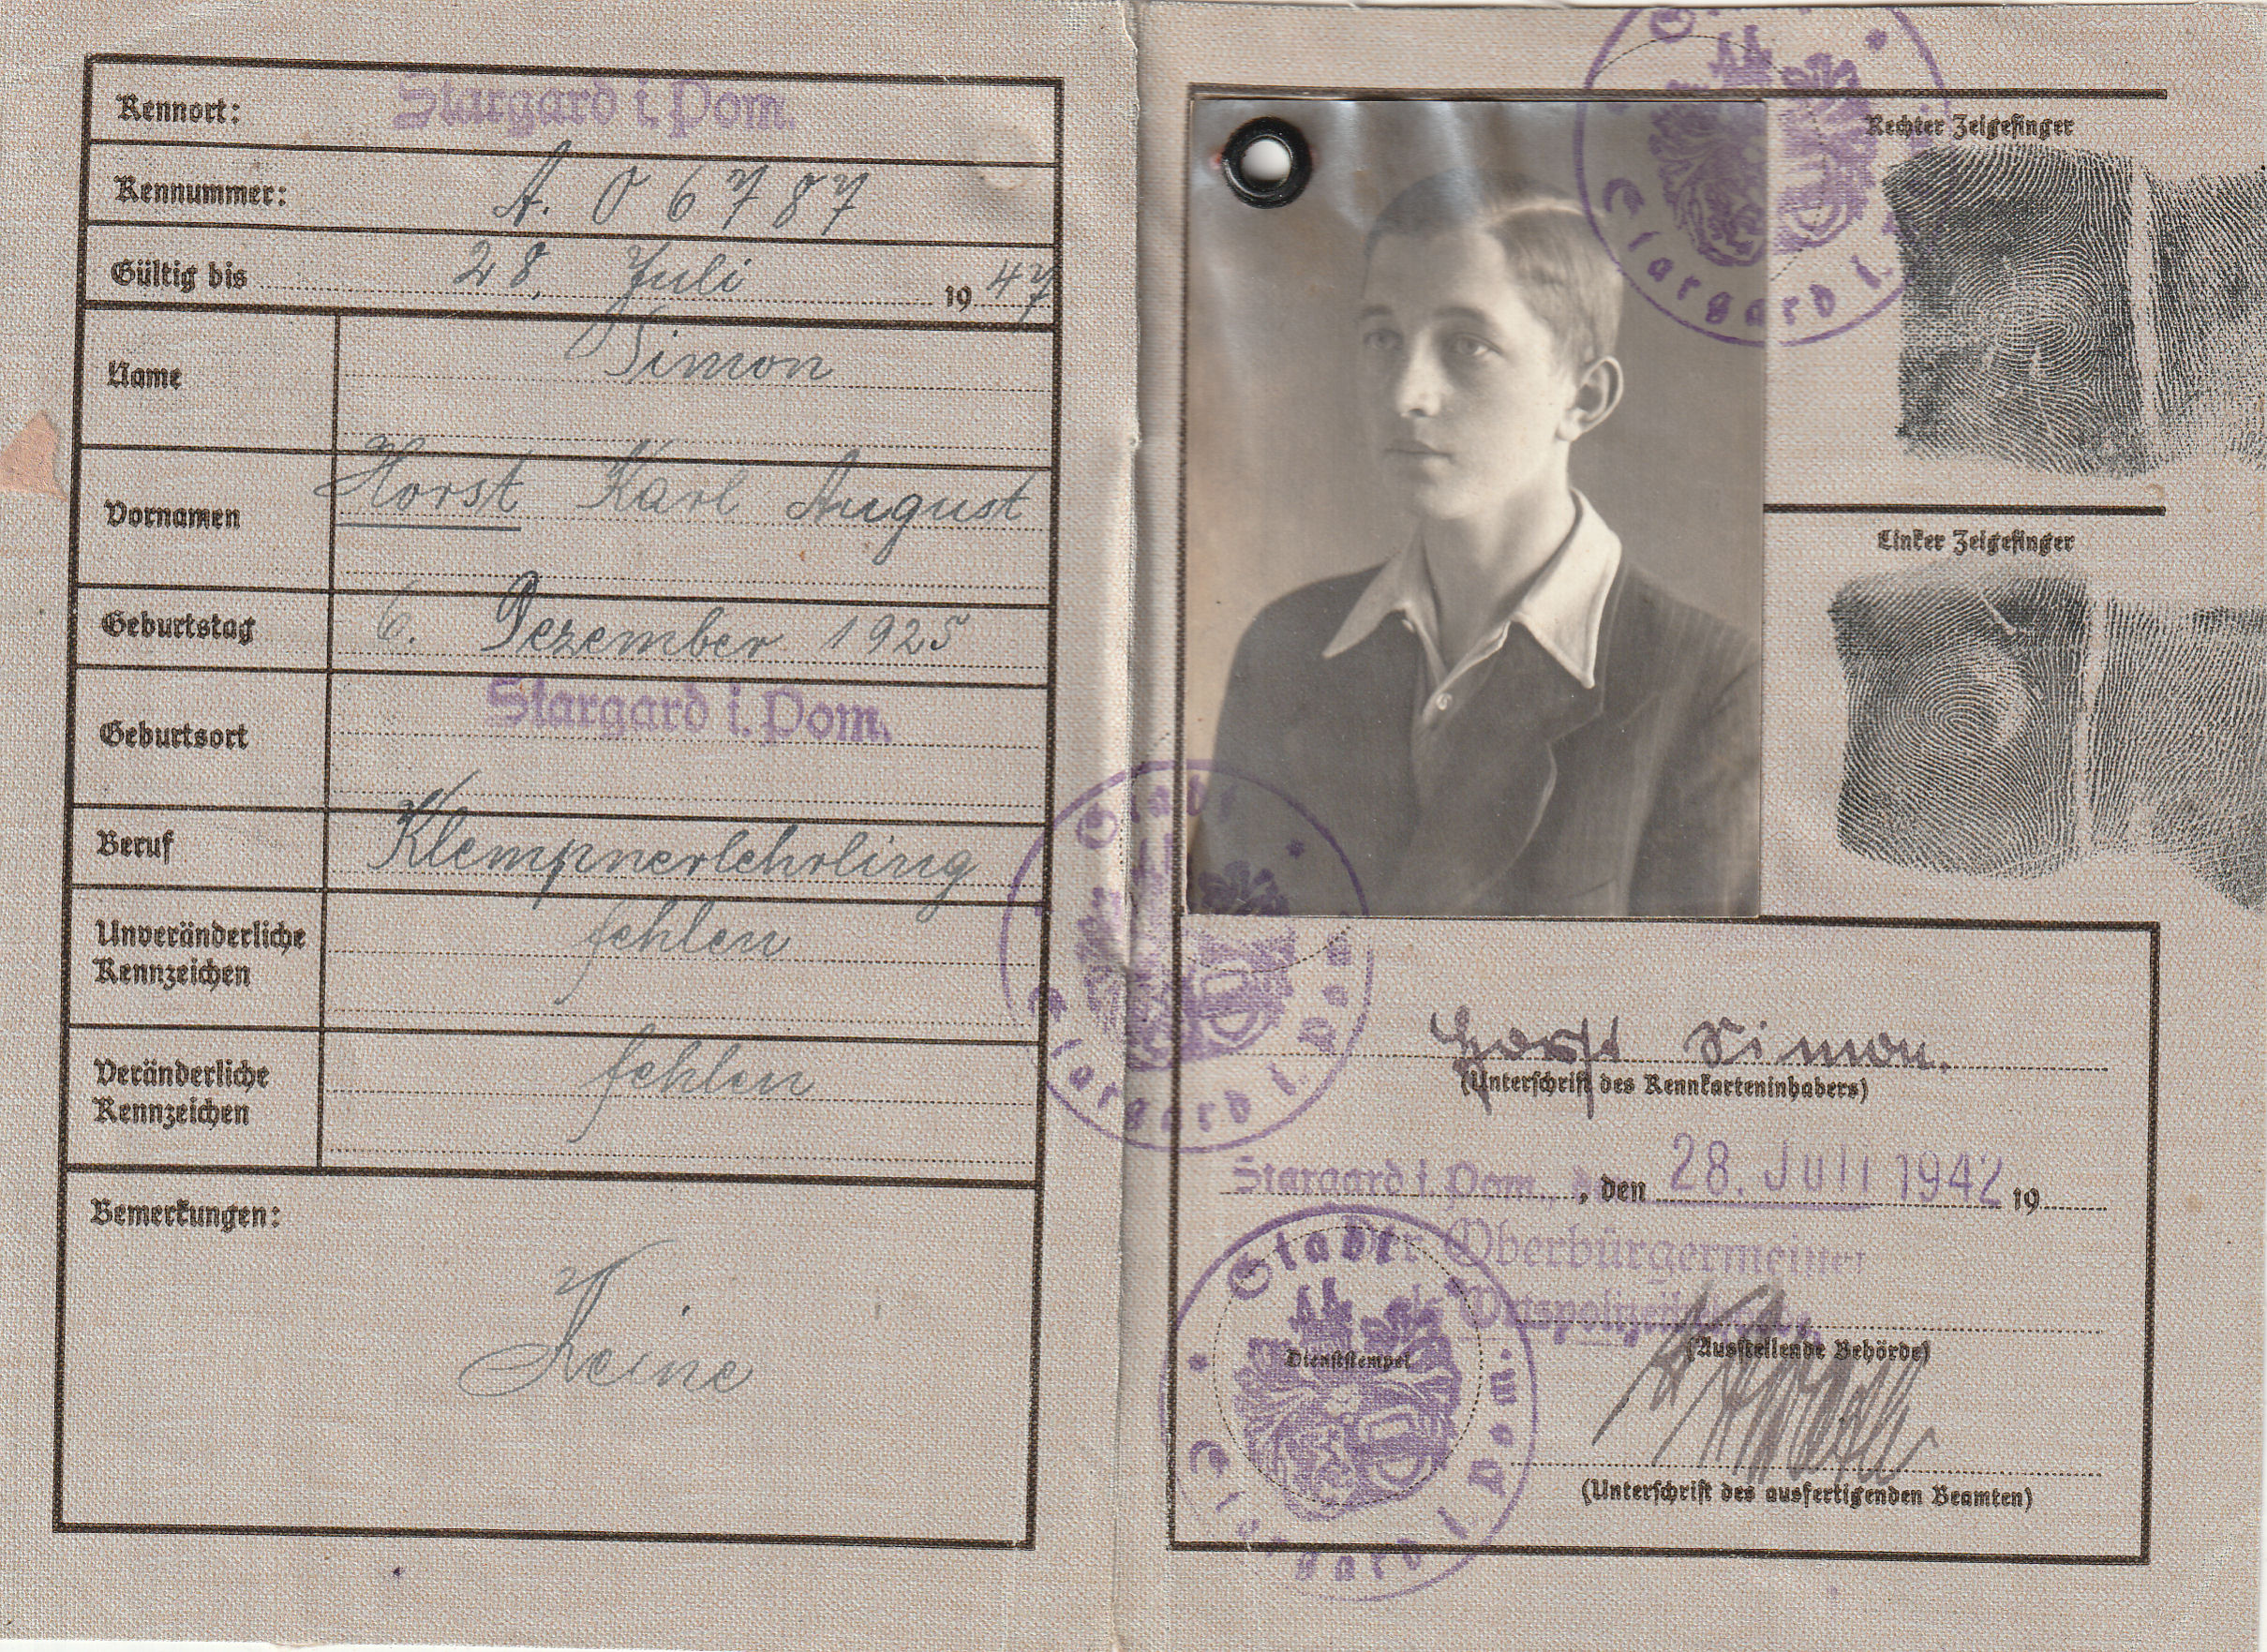 Kennort: Stargard i. Pom.
Kennummer: A. 06787
Gültig bis 28. Juli 1947
Name Simon
Vornamen Horst Karl August
Geburtstag 6. Dezember 1925
Geburtsort Stargard i. Pom.
Beruf Klempnerlehrling
Unveränderliche Kennzeichen fehlen
Veränderliche Kennzeichen fehlen
Bemerkungen:
Keine
Stadt
Stargard i. Pom.
Rechter Zeigefinger
Linker Zeigefinger
Stargard i.
Horst Simon.
(Unterschrift des Kennkarteninhabers)
Stargard i. Pom., den 28. Juli 1942 19
Der Oberbürgermeister
als Ortspolizeibehörde
(Ausstellende Behörde)
Stadt
Dienststempel
Stargard i. Pom.
(Unterschrift des ausfertigenden Beamten)